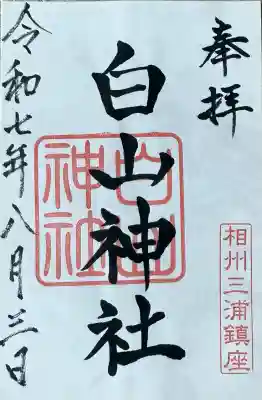 奉拝
相州三浦鎮座
白山神社
白山神社
令和七年八月三日